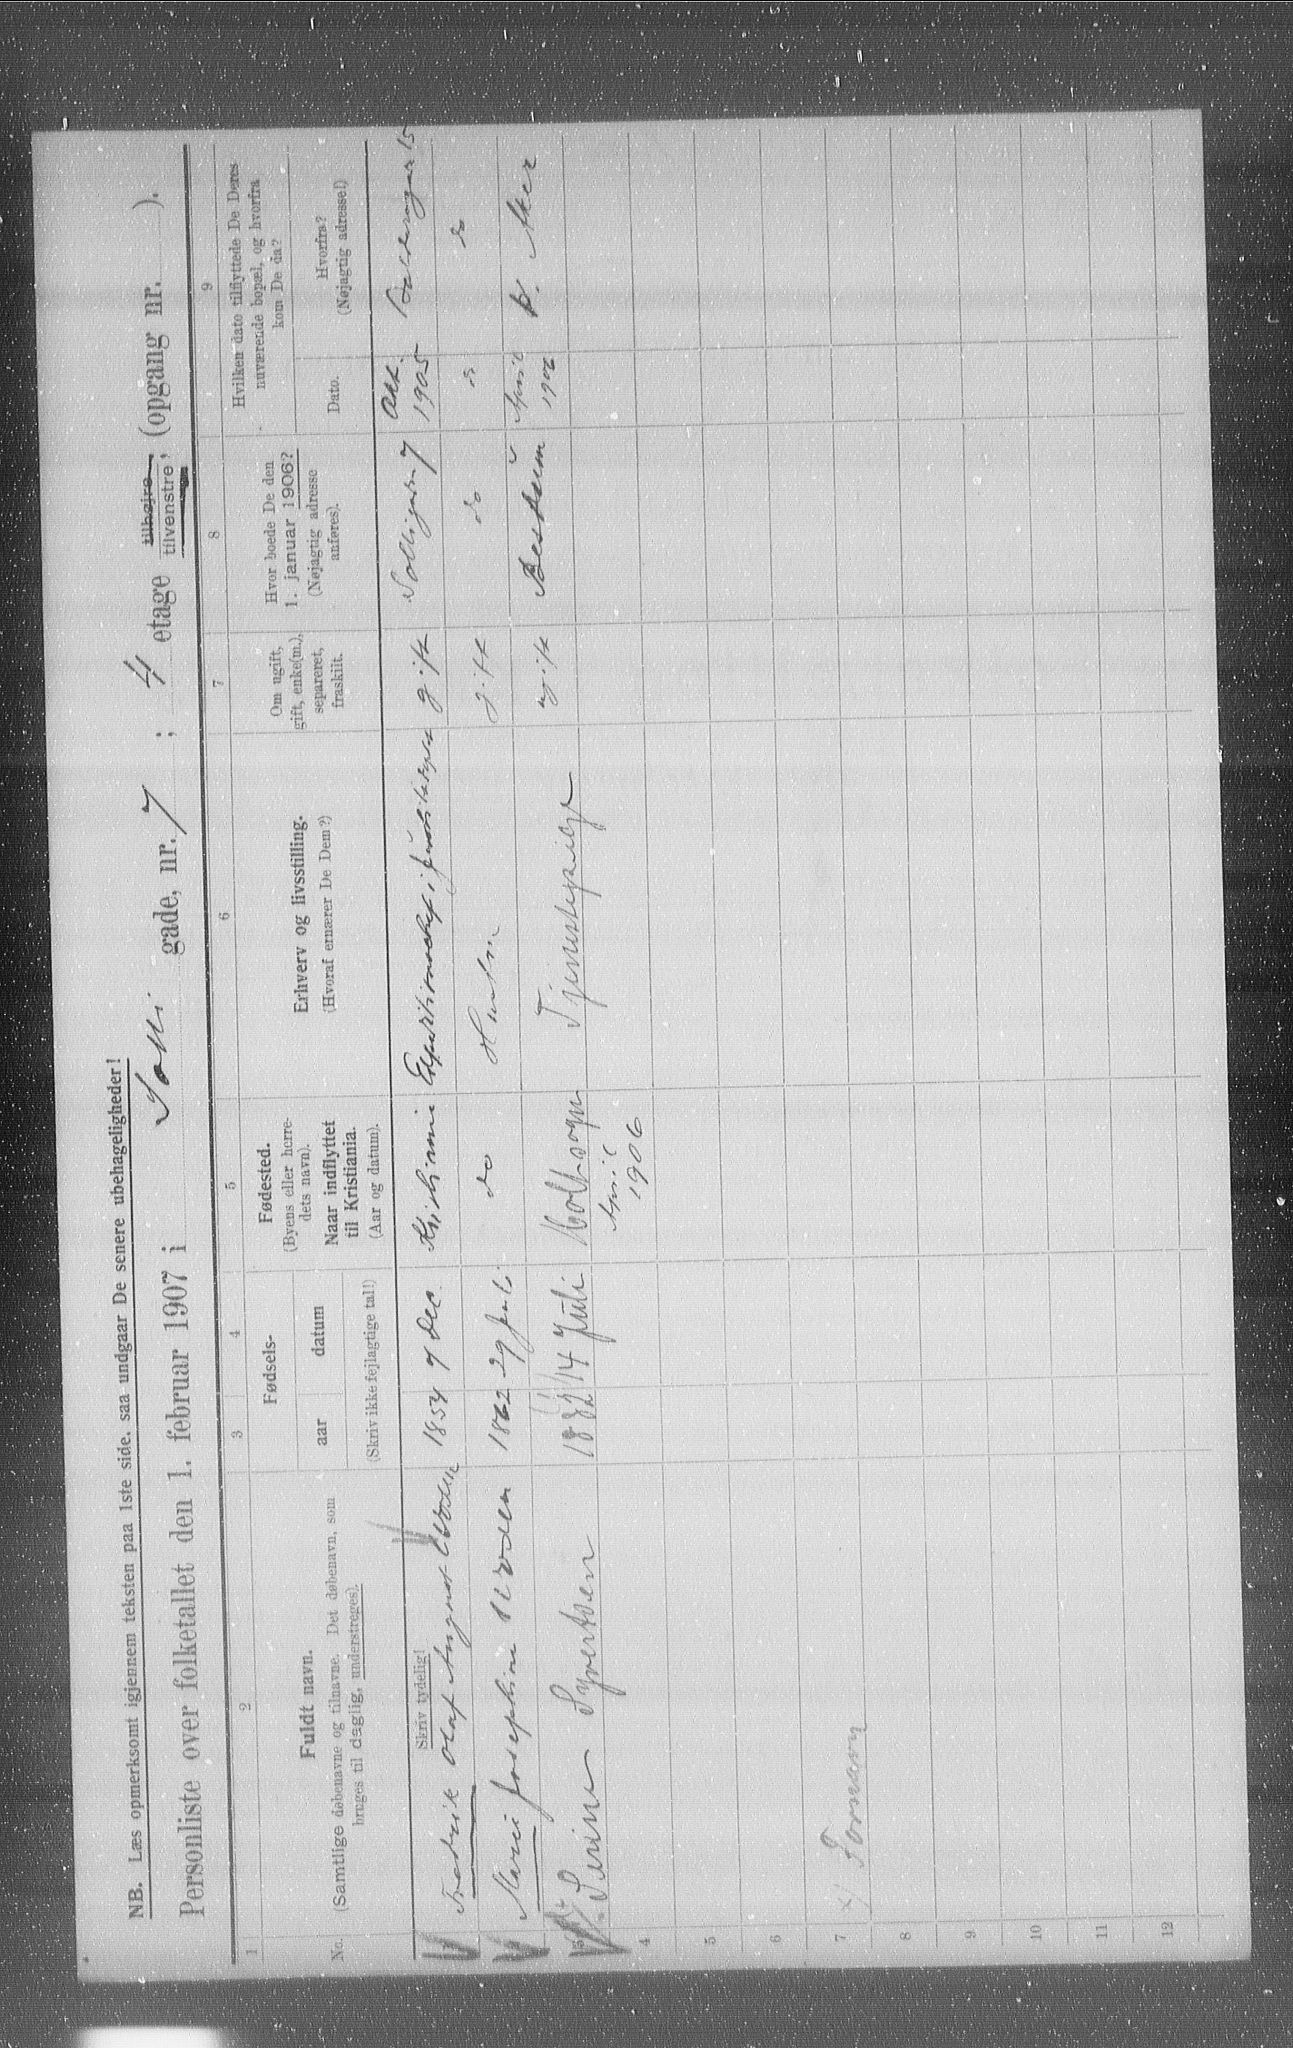 NB. Læs opmerksomt igjennem teksten paa 1ste side, saa undgaar De senere ubehageligheder!
Personliste over folketallet den 1. februar 1907 i Solli gade, nr. 7; 4 etage tilhøjre tilvenstre, (opgang nr. ).
1 2 3 4 5 6 7 8 9
No.
Fuldt navn.
(Samtlige døbenavne og tilnavne. Det døbenavn, som
bruges til daglig, understreges).
Fødsels-
aar datum
(Skriv ikke fejlagtige tal!)
Fødested.
(Byens eller herre-
dets navn).
Naar indflyttet
til Kristiania.
(Aar og datum).
Erhverv og livsstilling.
(Hvoraf ernærer De Dem?)
Om ugift,
gift, enke(m.),
separeret,
fraskilt.
Hvor boede De den
1. januar 1906?
(Nøjagtig adresse
anføres).
Hvilken dato tilflyttede De Deres
nuværende bopæl, og hvorfra
kom De da?
Dato.
Hvorfra?
(Nøjagtig adresse!)
Skriv tydelig!
Fredrik Olaf August 1854 7 Dec. Kristiania gift Solligaden 7 Okt. 1905 15
2 Marie Josephine 1862 29 Juli do Hustru gift do do do
3 Serine Syvertsen 1882 14 Juli April 1906 Tjenestepige ugift Bestum April 1906 V. Aker
4
5
6
7
8
9
10
11
12